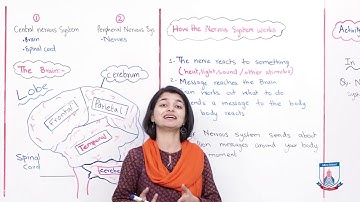 ① ②
Central nervous System
- Brain
- Spinal cord
Peripheral Nervous Sys
- Nerves
The Brain:-
Lobe
cerebrum
Frontal
Parietal
Temporal
Spinal
Cord
How the Nervous System works
1- The nerve reacts to something
(heat, light, sound / other stimulus)
2- Message reaches the Brain
works out what to do
a message to the body
body reacts
Nervous System sends about
messages around your body
moment
Activity
In